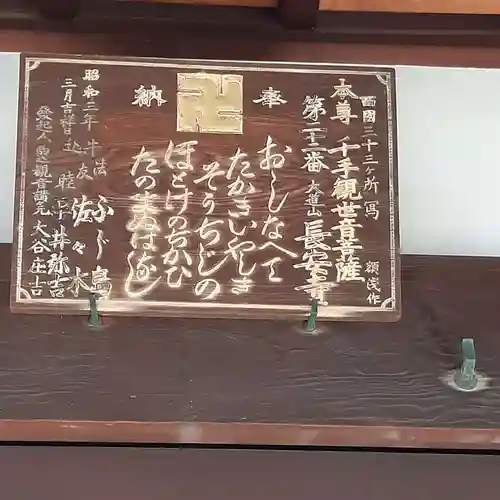 奉
納
西國三十三ヶ所寫
本尊千手観世音菩薩
第二十二番
大道山
長安寺
おしなへて
たかきいやしき
そうぢじの
ほとけのちかひ
たのまぬはなし
昭和三年
三月吉祥日
佐々木
井弥吉
大谷庄吉